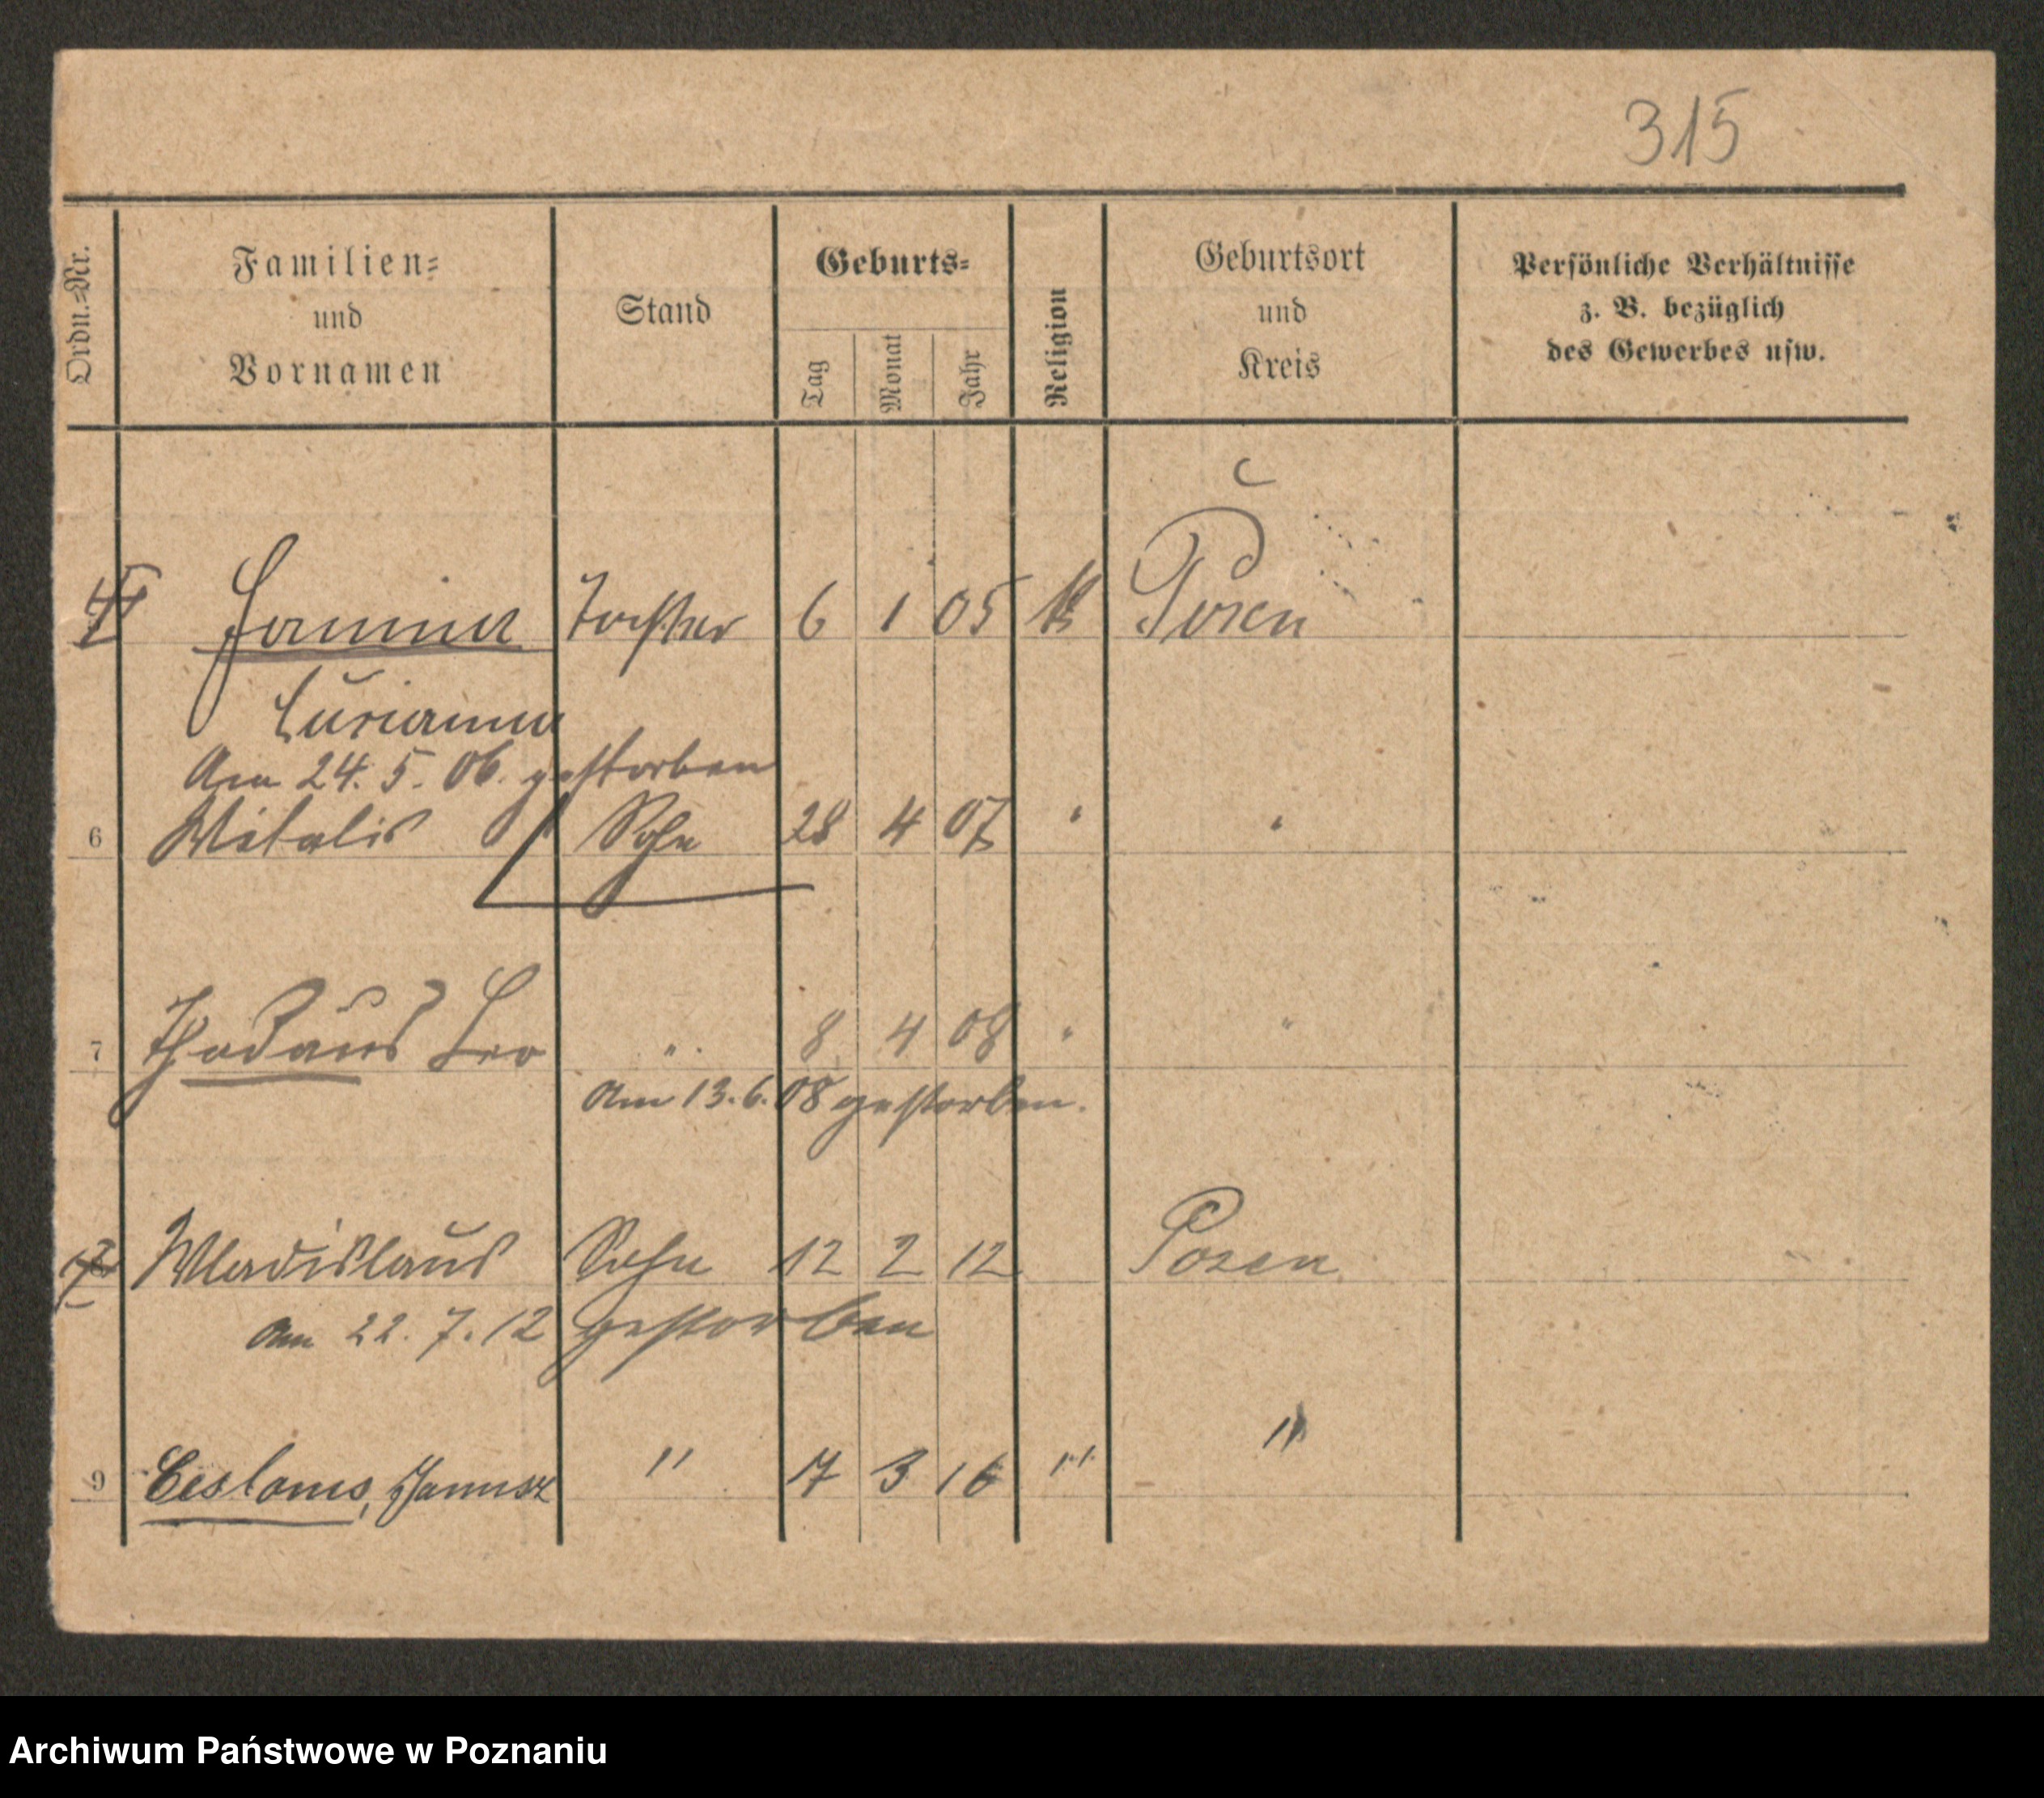 315
Ordn.=Nr.
Familien=
und
Vornamen
Stand
Geburts=
Tag
Monat
Jahr
Religion
Geburtsort
und
Kreis
Persönliche Verhältnisse
z. B. bezüglich
des Gewerbes usw.
Janina Tochter 6 1 05 k Posen
Luzianna
Am 24. 5. 06. gestorben
6 Witalis Sohn 28 4 07 " "
7 Thadäus Leo " 8 4 08 " "
Am 13. 6. 08 gestorben.
7 Wladislaus Sohn 12 2 12 Posen
Am 22. 7. 12 gestorben
9 Ceslaus, Janusz " 17 3 16 " "
Archiwum Państwowe w Poznaniu